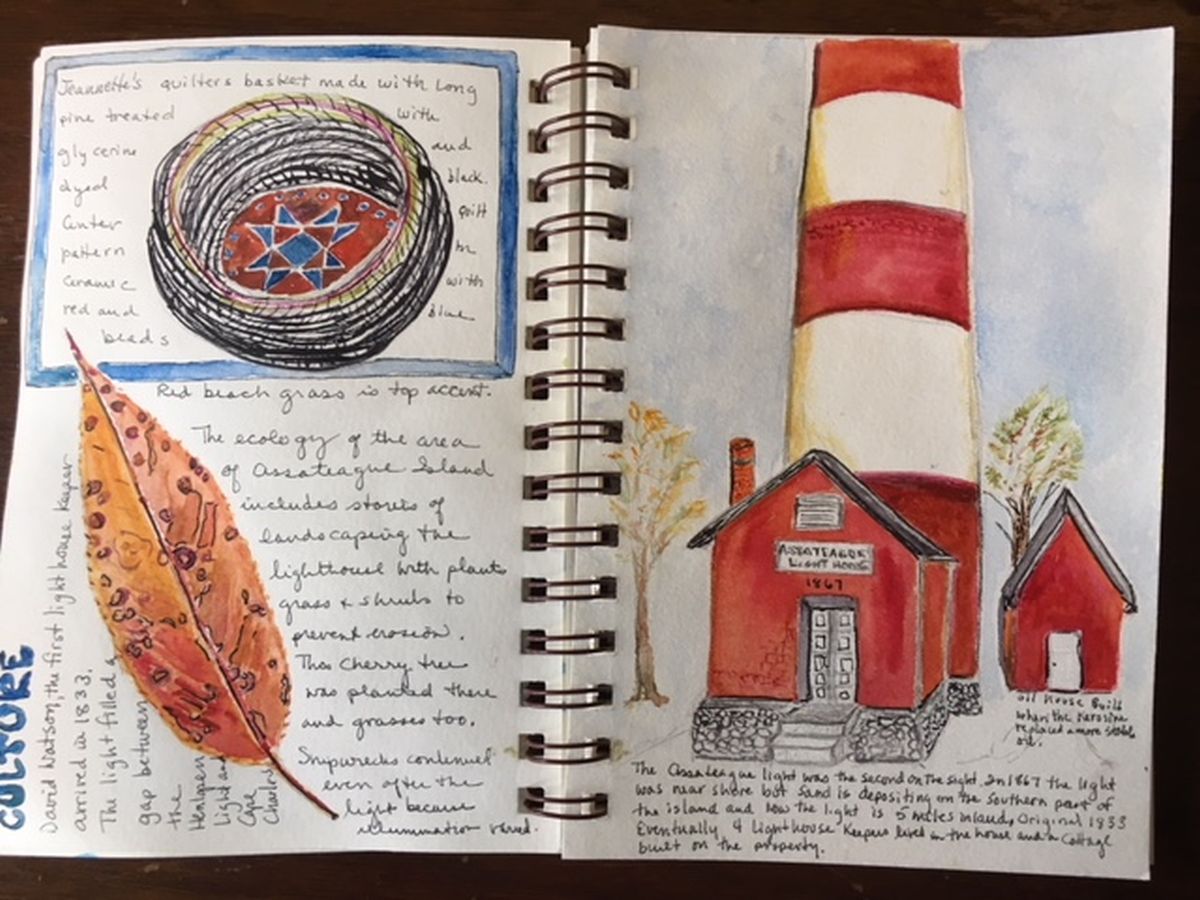 Jeannette's quilters basket made with long
pine treated with
glycerine and
dyed black.
Center quilt
pattern in
ceramic with
red and blue
beads
Red beach grass is top accent.
The ecology of the area
of Assateague Island
includes stories of
landscaping the
lighthouse with plants
grass & shrubs to
prevent erosion.
This cherry tree
was planted there
and grasses too.
Shipwrecks continued
even after the
light because
illumination varied.
CULTURE
David Watson, the first light house keeper
arrived in 1833.
The light filled a
gap between
the
Henlopen
Light and
Cape
Charles
ASSATEAGUE
LIGHT HOUSE
1867
oil house built
when the kerosine
replaced a more stable
oil.
The Assateague light was the second on the sight. In 1867 the light
was near shore but sand is depositing on the southern part of
the island and now the light is 5 miles inland. Original 1833
Eventually 4 lighthouse keepers lived in the house and a cottage
built on the property.